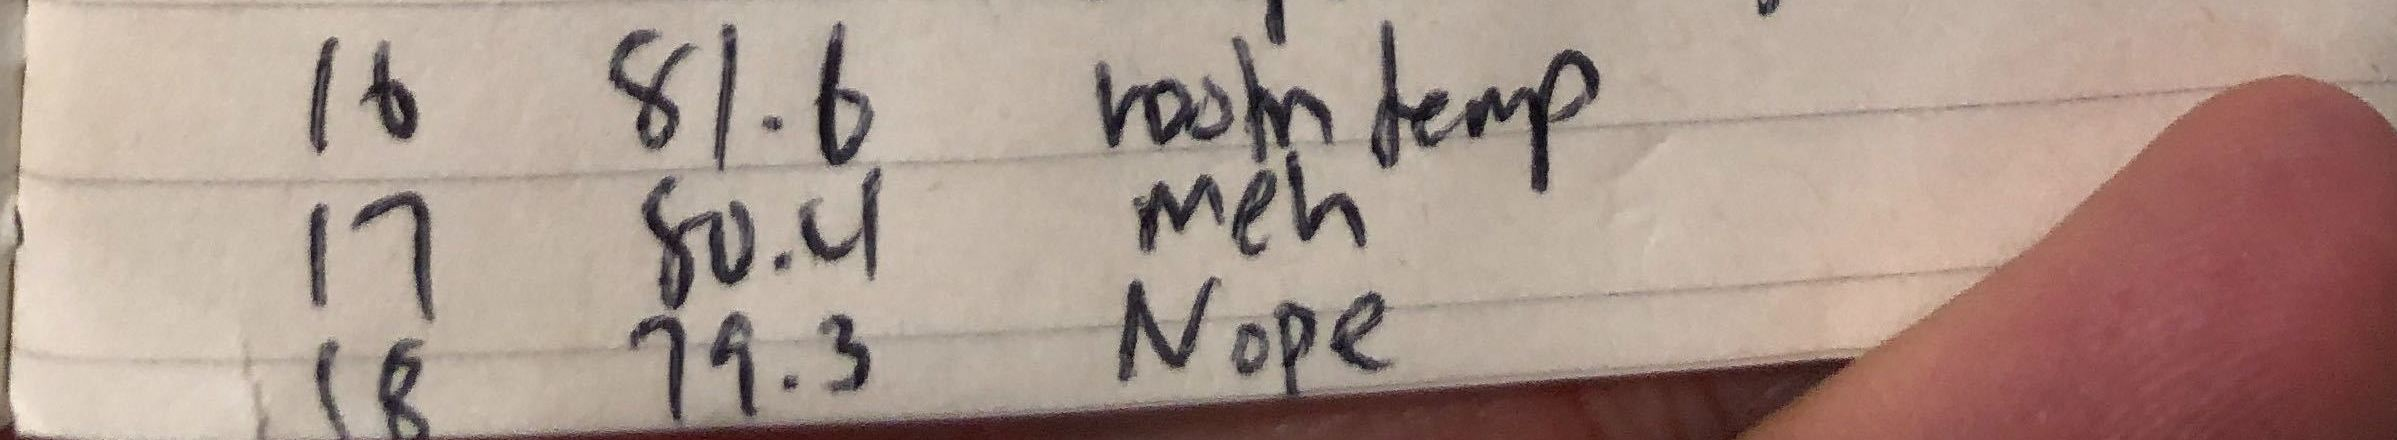 16 81.6 room temp
17 80.4 meh
18 79.3 Nope